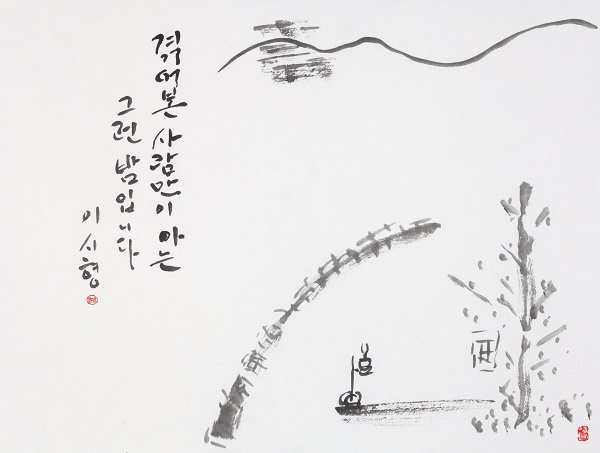 겪어본 사람만이 아는
그런 밤입니다
이시형